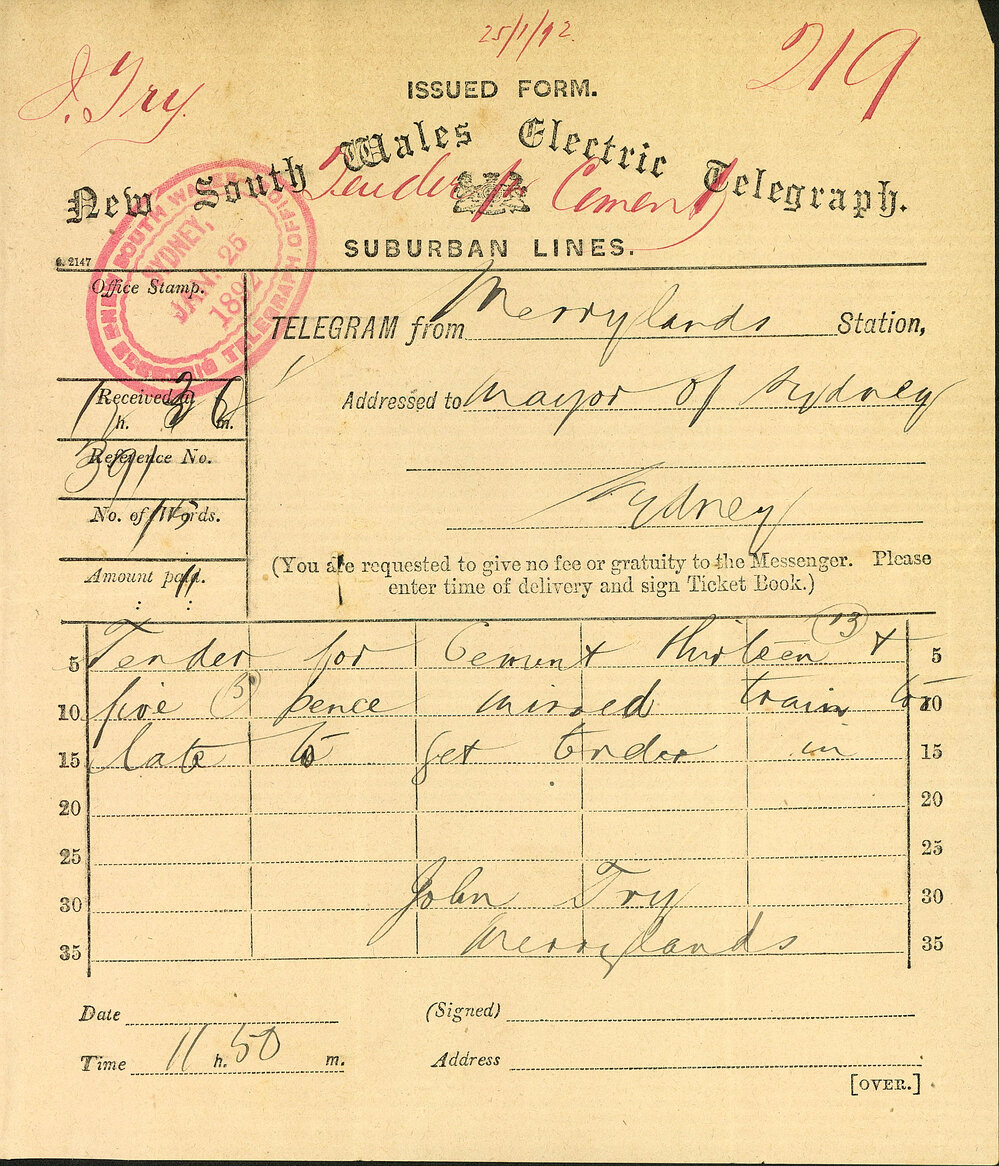 25/1/92.
J. Try.
219
ISSUED FORM.
New South Wales Electric Telegraph.
Tender for Cement
SUBURBAN LINES.
G. 2147
NEW SOUTH WALES ELECTRIC TELEGRAPH OFFICE
SYDNEY,
JAN. 25
1892
Office Stamp.
TELEGRAM from Merrylands Station,
Received at
h. 36 m.
Addressed to Mayor of Sydney
Reference No.
391
Sydney
No. of Words.
15
Amount paid.
1/
: :
(You are requested to give no fee or gratuity to the Messenger. Please
enter time of delivery and sign Ticket Book.)
5 Tender for Cement thirteen (13) & 5
10 five (5) pence missed train too 10
15 late to get tender in 15
20 20
25 25
30 John Try 30
35 Merrylands 35
Date (Signed)
Time 11 h. 50 m. Address
[OVER.]